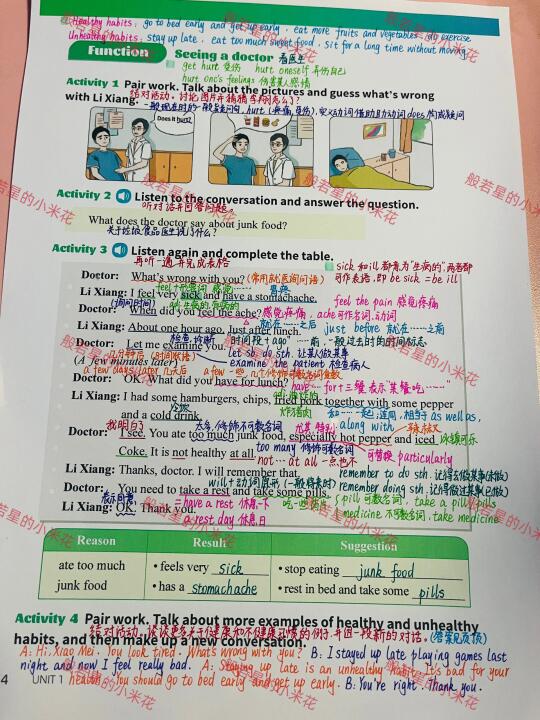 Healthy habits: go to bed early and get up early, eat more fruits and vegetables, do exercise
Unhealthy habits: stay up late, eat too much sweet food, sit for a long time without moving
Function Seeing a doctor 看医生
get hurt 受伤 hurt oneself 弄伤自己
hurt one's feelings 伤某人感情
Activity 1 Pair work. Talk about the pictures and guess what's wrong
with Li Xiang.
Does it hurt?
Activity 2 Listen to the conversation and answer the question.
听对话并回答问题。
What does the doctor say about junk food?
关于垃圾食品医生说了什么?
Activity 3 Listen again and complete the table.
再听一遍并完成表格
sick和ill都有为"生病的",两者都
可作表语,即 be sick = be ill
Doctor: What's wrong with you? (常用就医询问语)
Li Xiang: I feel very sick and have a stomachache.
feel the pain 感觉疼痛
Doctor: When did you feel the ache? 感觉疼痛, ache可作名词,动词
Li Xiang: About one hour ago, just after lunch.
就在……之后 just before 就在……之前
Doctor: Let me examine you.
检查,诊断
时间段+ago "……前",一般过去时的时间标志
let sb. do sth. 让某人做某事
examine the patient 检查病人
(A few minutes later)
a few days later 几天后
Doctor: OK. What did you have for lunch?
have… for+三餐 表示"某餐吃……"
Li Xiang: I had some hamburgers, chips, fried pork together with some pepper
and a cold drink.
冷饮
炸猪肉
和……一起,连同,相当于 as well as,
along with
Doctor: I see. You ate too much junk food, especially hot pepper and iced
我明白了
冰镇可乐
Coke. It is not healthy at all.
too many 修饰可数名词
可替换 particularly
not… at all 一点也不
Li Xiang: Thanks, doctor. I will remember that.
remember to do sth. 记得去做某事(未做)
will+动词原形 (一般将来时)
remember doing sth. 记得做过某事(已做)
Doctor: You need to take a rest and take some pills.
Li Xiang: OK. Thank you.
表示同意
= have a rest 休息一下
吃一些药片
pill 可数名词, take a pill/pills
medicine 不可数名词, take medicine
a rest day 休息日
Reason Result Suggestion
ate too much
junk food
• feels very sick
• has a stomachache
• stop eating junk food
• rest in bed and take some pills
Activity 4 Pair work. Talk about more examples of healthy and unhealthy
habits, and then make up a new conversation.
结对活动。谈谈更多关于健康和不健康习惯的例子,并组一段新的对话。(答案见页顶)
A: Hi, Xiao Mei. You look tired. What's wrong with you? B: I stayed up late playing games last
night and now I feel really bad. A: Staying up late is an unhealthy habit. It's bad for your
health. You should go to bed early and get up early. B: You're right. Thank you.
4 UNIT 1
般若星的小米花